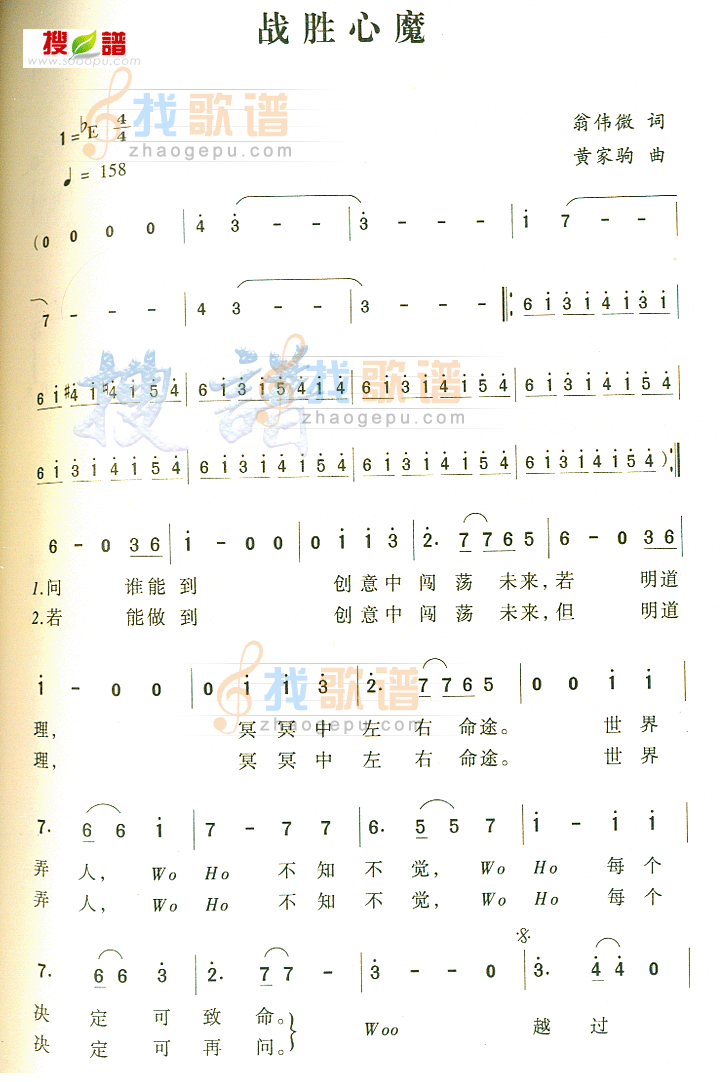 搜谱
www.sooopu.com
战胜心魔
找歌谱
zhaogepu.com
1=♭E 4/4
翁伟微 词
♩= 158
黄家驹 曲
(0 0 0 0 | 4̇ 3̇ - - | 3̇ - - - | i 7 - - |
7 - - - | 4 3 - - | 3 - - - |: 6 i 3̇ i 4̇ i 3̇ i |
6 i #4̇ i ♮4̇ i 5̇ 4̇ | 6 i 3̇ i 5̇ 4̇ i 4̇ | 6 i 3̇ i 4̇ i 5̇ 4̇ | 6 i 3̇ i 4̇ i 5̇ 4̇ |
搜谱
找歌谱
zhaogepu.com
6 i 3̇ i 4̇ i 5̇ 4̇ | 6 i 3̇ i 4̇ i 5̇ 4̇ | 6 i 3̇ i 4̇ i 5̇ 4̇ | 6 i 3̇ i 4̇ i 5̇ 4̇) :|
6 - 0 3 6 | i - 0 0 | 0 i i 3̇ | 2̇. 7 7 6 5 | 6 - 0 3 6 |
1.问 谁能到 创意中闯荡 未来,若 明道
2.若 能做到 创意中闯荡 未来,但 明道
找歌谱
zhaogepu.com
i - 0 0 | 0 i i 3̇ | 2̇. 7 7 6 5 | 0 0 i i |
理, 冥冥中左右命途。 世界
理, 冥冥中左右命途。 世界
7. 6 6 i | 7 - 7 7 | 6. 5 5 7 | i - i i |
弄人, Wo Ho 不知不觉, Wo Ho 每个
弄人, Wo Ho 不知不觉, Wo Ho 每个
7. 6 6 3̇ | 2̇. 7 7 - | 3̇ - - 0 | 3̇. 4̇ 4̇ 0
决定可致命。
Woo 越过
决定可再问。